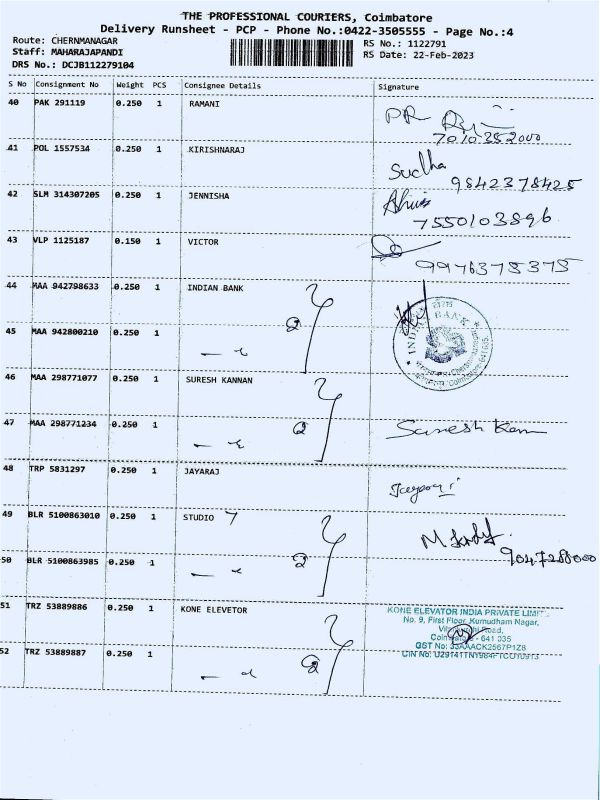 THE PROFESSIONAL COURIERS, Coimbatore
Delivery Runsheet - PCP - Phone No.:0422-3505555 - Page No.:4
Route: CHERNMANAGAR
Staff: MAHARAJAPANDI
DRS No.: DCJB112279104
RS No.: 1122791
RS Date: 22-Feb-2023
S No Consignment No Weight PCS Consignee Details Signature
40 PAK 291119 0.250 1 RAMANI PR
41 POL 1557534 0.250 1 KIRISHNARAJ Sudha
9842378425
42 SLM 314307205 0.250 1 JENNISHA
7550103896
43 VLP 1125187 0.150 1 VICTOR
9976375375
44 MAA 942798633 0.250 1 INDIAN BANK
INDIAN BANK
45 MAA 942800210 0.250 1
2
46 MAA 298771077 0.250 1 SURESH KANNAN
47 MAA 298771234 0.250 1
2
Suresh Kann
48 TRP 5831297 0.250 1 JAYARAJ
49 BLR 5100863010 0.250 1 STUDIO 7
50 BLR 5100863985 0.250 1
2
51 TRZ 53889886 0.250 1 KONE ELEVETOR
KONE ELEVATOR INDIA PRIVATE LIMIT
No. 9, First Floor, Kumudham Nagar,
Road,
- 641 035
GST No: 33AAACK2567P1Z8
52 TRZ 53889887 0.250 1
2